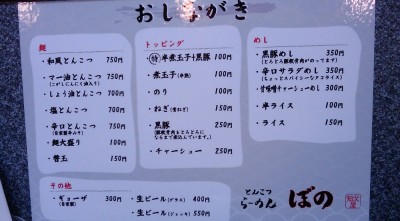 おしながき
麺
・和風とんこつ 750円
・マー油とんこつ 700円
(こがしにんにく油入り)
・しょう油とんこつ 700円
・塩とんこつ 700円
・辛口とんこつ 750円
・麺大盛り 100円
・替玉 150円
トッピング
・特 半煮玉子+黒豚 100円
・煮玉子(半熟) 100円
・のり 100円
・ねぎ(青ねぎ) 150円
・黒豚 250円
・チャーシュー 250円
めし
・黒豚めし 350円
・辛口サラダめし 350円
(ちょっとスパイシーなタコライス)
・甘味噌チャーシューめし 300円
・半ライス 100円
・ライス 150円
その他
・ギョーザ 300円
・生ビール(グラス) 400円
・生ビール(ジョッキ) 550円
とんこつ
らーめん
ぼの